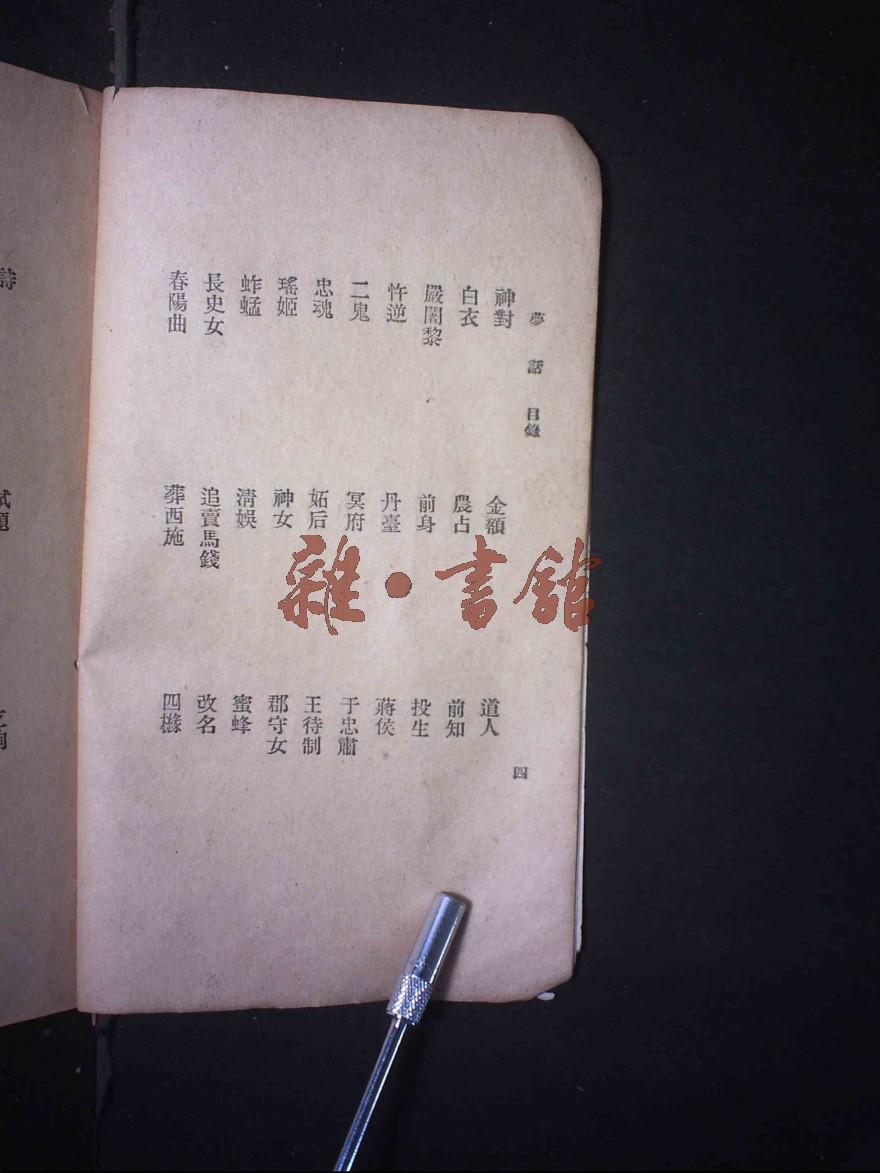 夢話 目錄
四
神對 金額 道人
白衣 農占 前知
嚴闍黎 前身 投生
忤逆 丹臺 蔣侯
二鬼 冥府 于忠肅
忠魂 妬后 王待制
瑤姬 神女 郡守女
蚱蜢 清娛 蜜蜂
長史女 追賣馬錢 改名
春陽曲 葬西施 四橼
詩
雜·書館